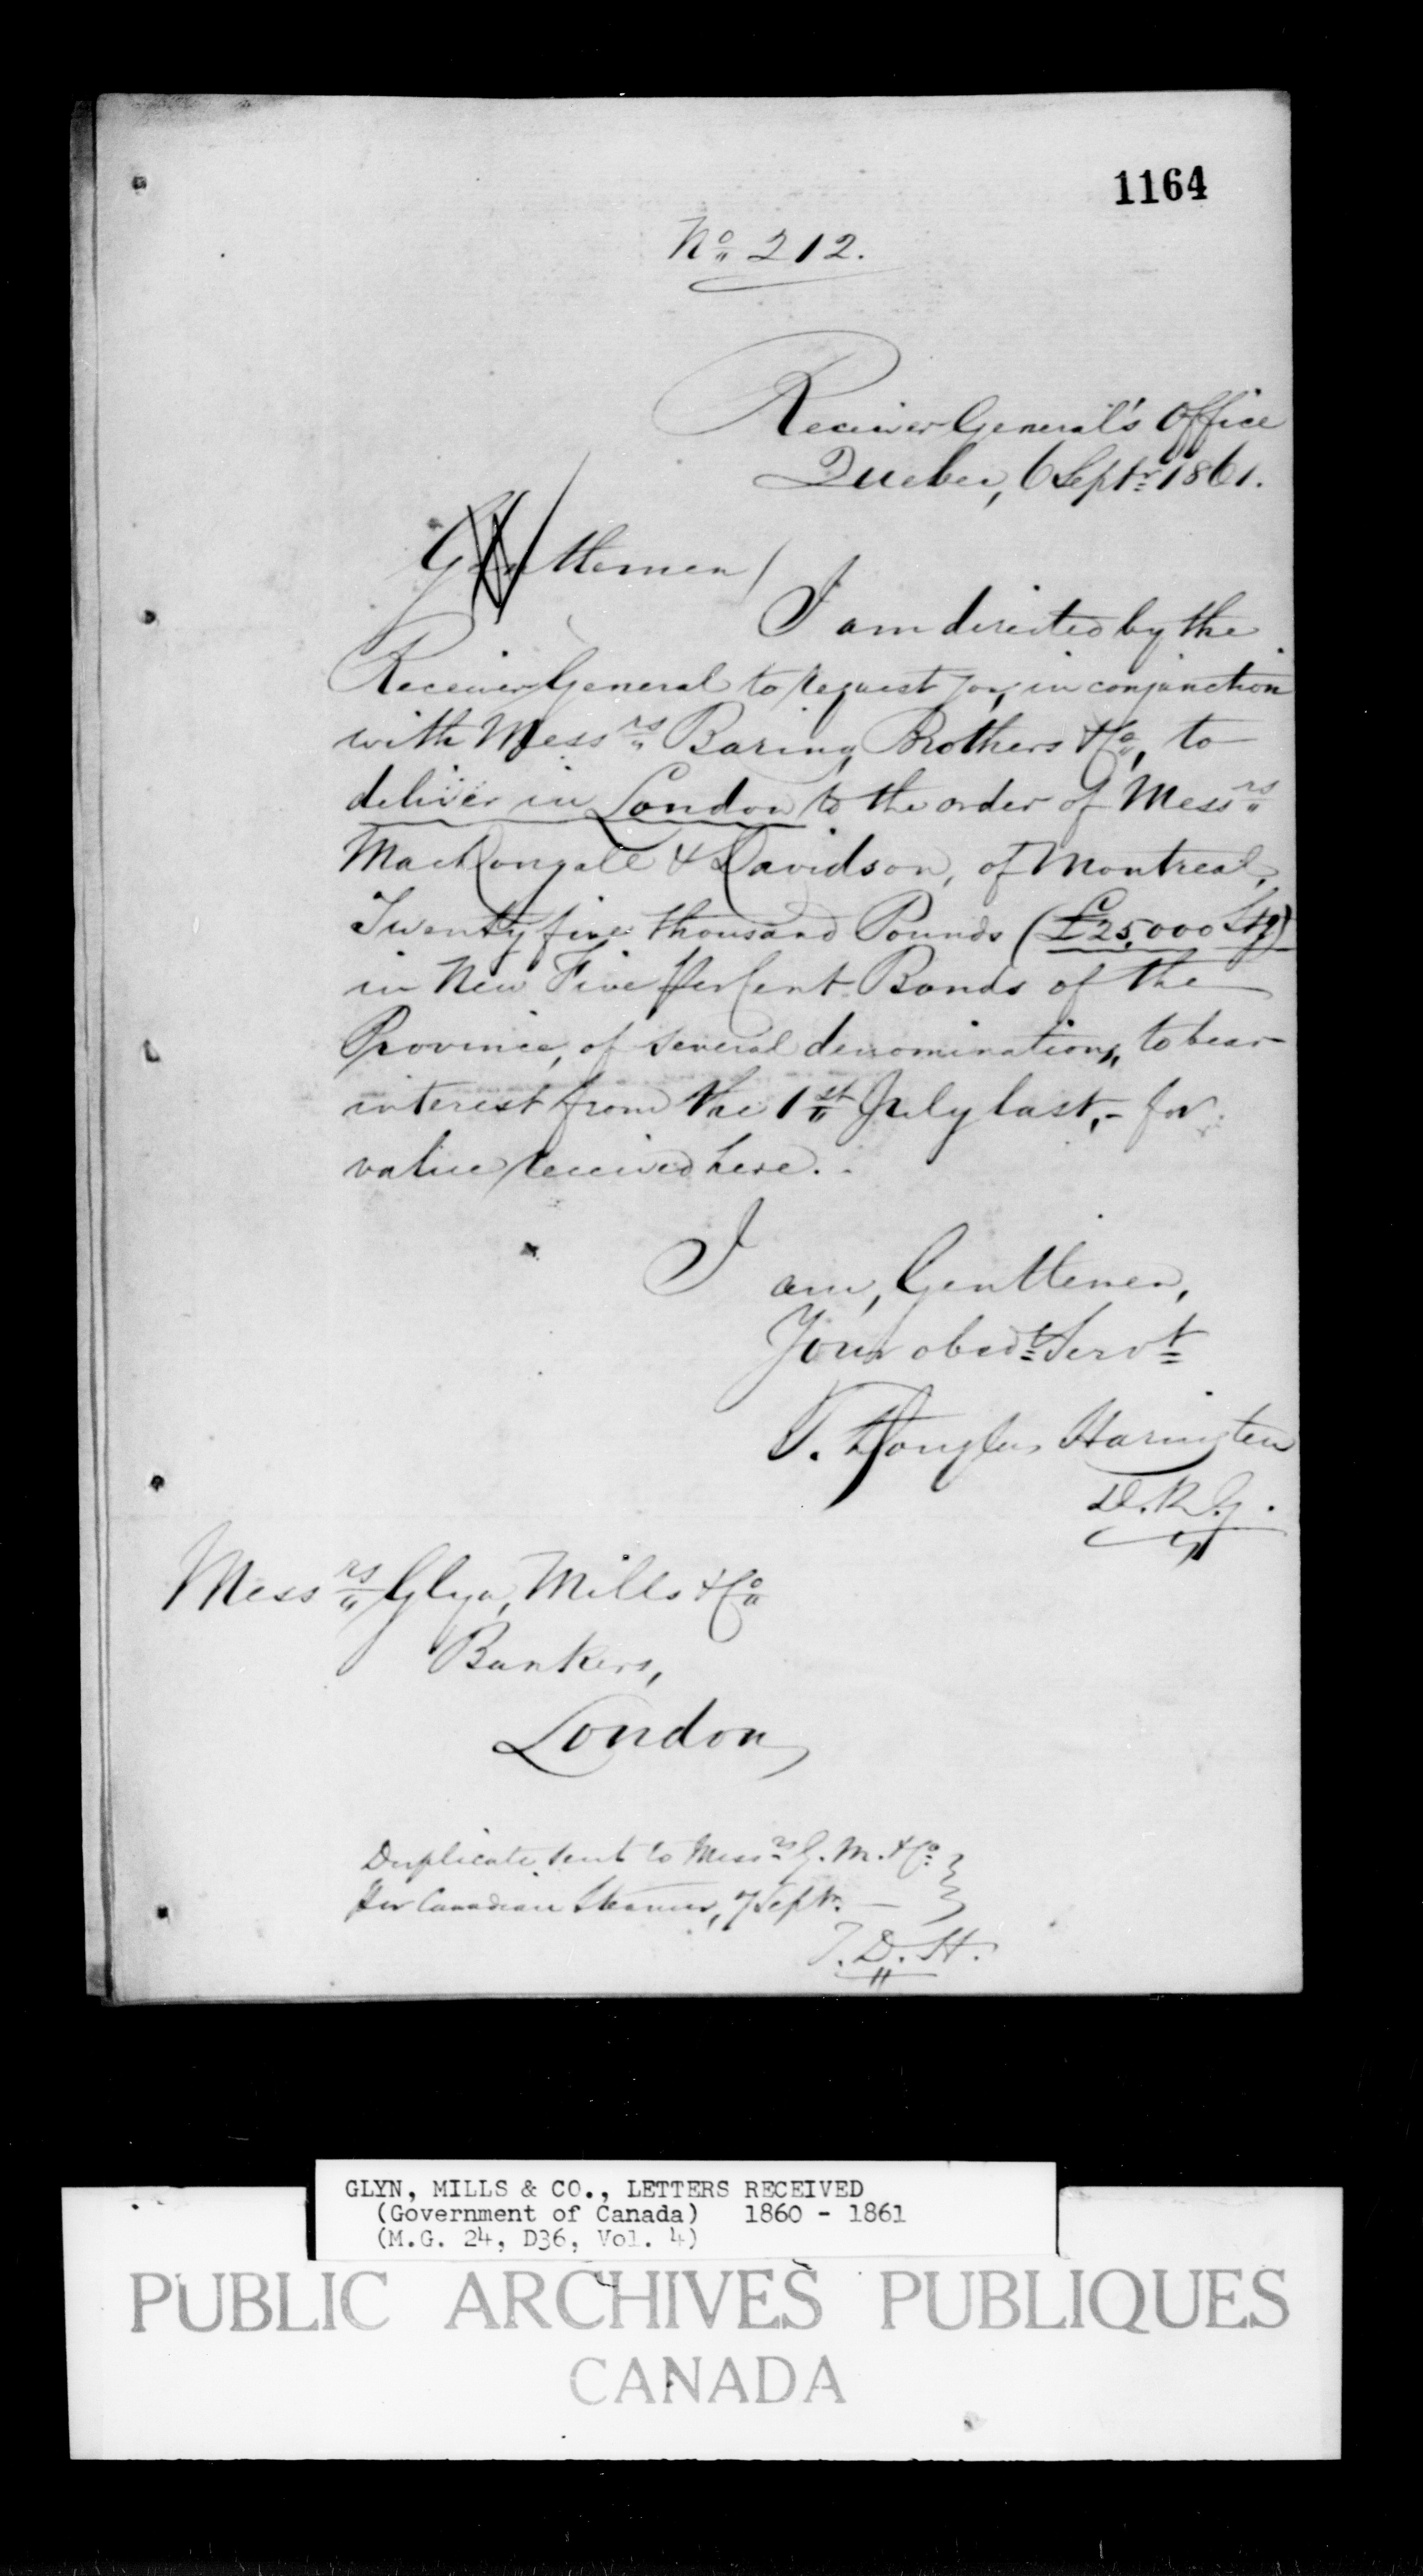 1164
No. 212.
Receiver General's Office
Quebec, 6 Septr. 1861.
Gentlemen/
I am directed by the
Receiver General to request you, in conjunction
with Messrs. Baring, Brothers & Co., to
deliver in London to the order of Messrs.
MacDougall & Davidson, of Montreal,
Twenty five thousand Pounds (£25,000 Stg)
in New Five per Cent Bonds of the
Province, of several denominations, to bear
interest from the 1st July last, - for
value received here. -
I am, Gentlemen,
Your obedt. Servt.
T. Douglas Harington
D.R.G.
Messrs. Glyn, Mills & Co.
Bankers,
London
Duplicate sent to Messrs. G. M. & Co.
per Canadian Steamer, 7 Septr. —
T. D. H.
GLYN, MILLS & CO., LETTERS RECEIVED
(Government of Canada) 1860 - 1861
(M.G. 24, D36, Vol. 4)
PUBLIC ARCHIVES PUBLIQUES
CANADA